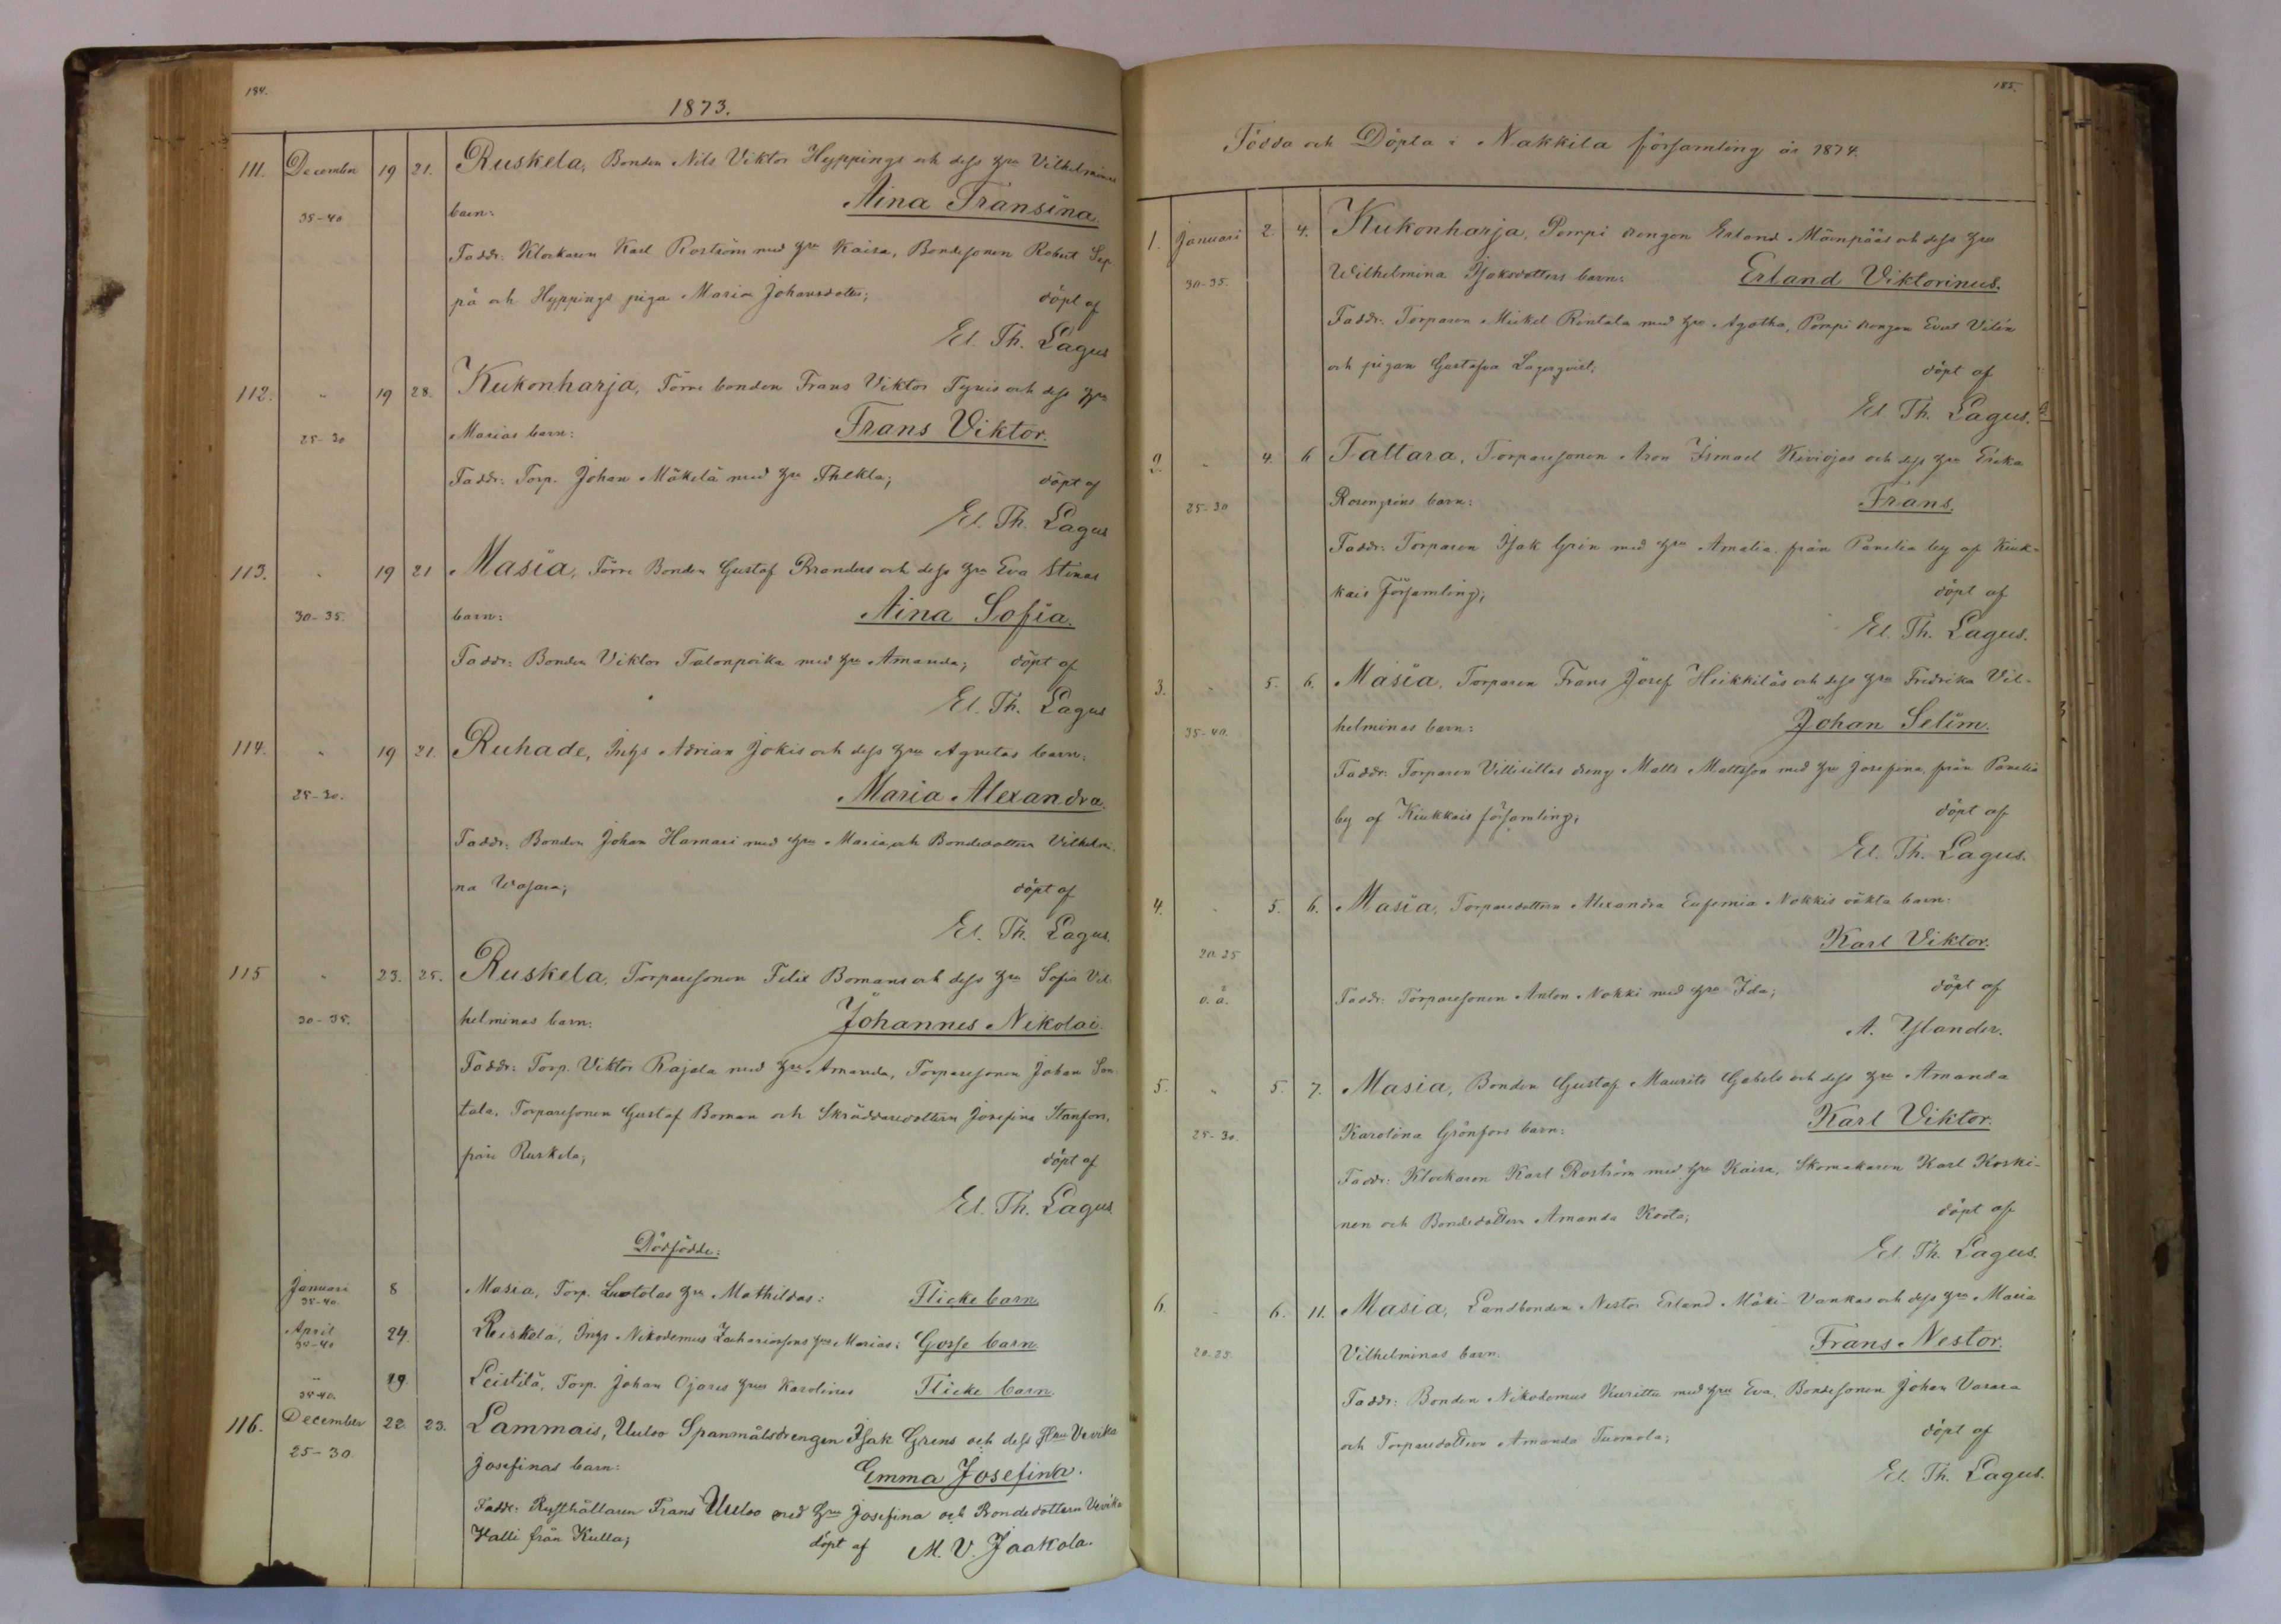 184.
1873.
111. December 19 21. Ruskela, Bonden Nils Viktor Hyppings och dess hru Vilhelminas
35-40 barn: Aina Fransina.
Faddr: Klockaren Karl Roström med hru Kaisa, Bondesonen Robert Sep-
pä och Hyppings piga Maria Johansdotter; döpt af
El. Th. Lagus
112. " 19 28. Kukonharja, Förre bonden Frans Viktor Tynis och dess hru
25-30 Marias barn: Frans Viktor.
Faddr: Torp. Johan Mäkelä med hru Thekla; döpt af
El. Th. Lagus
113. " 19 21 Masia, Förre Bonden Gustaf Branders och dess hru Eva Stinas
30-35. barn: Aina Sofia.
Faddr: Bonden Viktor Talonpoika med hru Amanda; döpt af
El. Th. Lagus
114. " 19 21. Ruhade, Inhs Adrian Jokis och dess hru Agnetas barn:
25-30. Maria Alexandra.
Faddr: Bonden Johan Hamari med hru Maria, och Bondedottern Vilhelmi-
na Wasara; döpt af
El. Th. Lagus.
115 " 23. 25. Ruskela, Torparesonen Felix Bomans och dess hru Sofia Vil-
30-35. helminas barn: Johannes Nikolai.
Faddr: Torp. Viktor Rajala med hru Amanda, Torparesonen Johan San-
tala, Torparesonen Gustaf Boman och Skräddaredottern Josefina Stenfors,
från Ruskela; döpt af
El. Th. Lagus
Dödfödde:
Januari 8 Masia, Torp. Luotolas hru Mathildas: Flicke barn
35-40.
April 24. Ruskela, Inhs Nikodemus Zachariassons hru Marias: Gosse barn
35-40
" 29. Leistilä, Torp. Johan Ojares hrus Karolines Flicke barn
35-40.
116. December 22. 23. Lammais, Uuloo Spanmålsdrengen Isak Grens och dess Hru Vevika
25-30. Josefinas barn: Emma Josefina.
Faddr: Rusthållaren Frans Uuloo med hru Josefina och Bondedottern Vevika
Halli från Kulla; döpt af M. V. Jaakola.
185.
Födda och Döpta i Nakkila församling år 1874.
1. Januari 2. 4. Kukonharja, Pompi drengen Erland Mäenpääs och dess hru
30-35. Wilhelmina Isaksdotters barn: Erland Viktorinus.
Faddr: Torparen Mickel Rintala med hru Agatha, Pompi drengen Evert Vilén
och pigan Gustafva Lagerqvist; döpt af
El. Th. Lagus.
2. " 4. 6 Tattara, Torparesonen Aron Ismael Kiviojas och dess hru Erika
25-30 Rosengréns barn: Frans.
Faddr: Torparen Isak Grén med hru Amalia från Panelia by af Kiuk-
kais Församling; döpt af
El. Th. Lagus.
3. " 5. 6. Masia, Torparen Frans Josef Heikkiläs och dess hru Fredrika Vil-
35-40. helminas barn: Johan Selim.
Faddr: Torparen Villisillas dreng Matts Mattsson med hru Josefina från Panelia
by af Kiukkais församling; döpt af
El. Th. Lagus.
4. " 5. 6. Masia, Torparedottern Alexandra Eufemia Nokkis oäkta barn:
20-25 Karl Viktor.
o. ä. Faddr: Torparesonen Anton Nokki med hru Ida; döpt af
A. Ylander.
5. " 5. 7. Masia, Bonden Gustaf Maurits Gabels och dess hru Amanda
25-30. Karolina Grönfors barn: Karl Viktor.
Faddr: Klockaren Karl Roström med hru Kaisa, Skomakaren Karl Koski-
nen och Bondedottern Amanda Koota; döpt af
El. Th. Lagus.
6. " 6. 11. Masia, Landbonden Nestor Erland Mäki-Vankas och dess hru Maria
20-25. Vilhelminas barn. Frans Nestor.
Faddr: Bonden Nikodemus Kuritta med hru Eva, Bondesonen Johan Vasara
och Torparedottern Amanda Tuomola; döpt af
El. Th. Lagus.